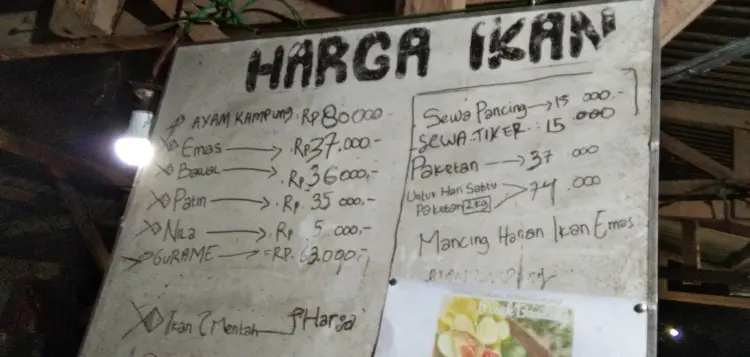 HARGA IKAN
AYAM KAMPUNG. RP 80000-
Emas → RP 37.000.-
Bawal → RP. 36000,-
Patin → RP. 35 000,-
NILA → RP. 5.000,-
GURAME → = RP. 63.000,-
Ikan Mentah Harga
Sewa Pancing → 15 000.-
SEWA. TIKER : 15 000
Paketan → 37 000
Untuk Hari Sabtu
Paketan 2kg 74.000
Mancing Harian Ikan Emas